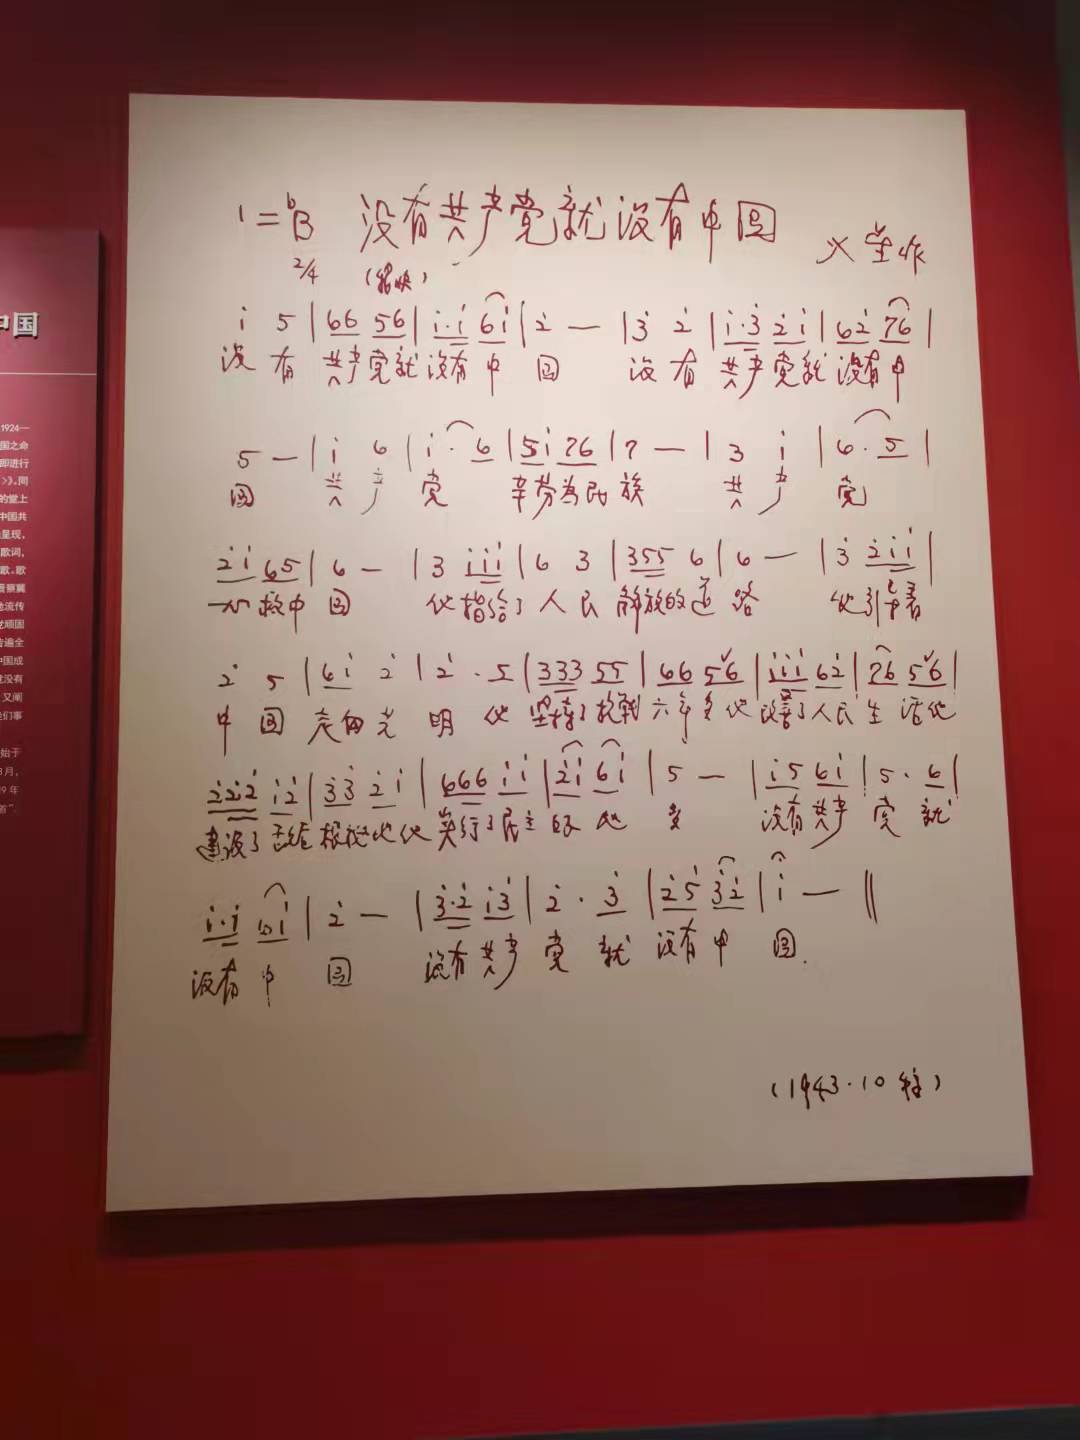 中国
1924—
国之命
即进行
>》。同
的堂上
中国共
呈现，
歌词，
歌。歌
流传
党顽固
遍全
中国成
没有
又阐
们事
始于
8月，
9年
首”。
1=♭B 没有共产党就没有中国
2/4 (稍快) 火星作
i 5 | 66 56 | i·i 6i | 2̇ — | 3̇ 2̇ | i·3̇ 2̇i | 62̇ 76 |
没 有 共产党就没有中 国 没 有 共产党就 没有中
5 — | i 6 | i·6 | 5i 76 | 7 — | 3 i | 6·5 |
国 共 产 党 辛劳为民族 共 产 党
2̇i 65 | 6 — | 3 iii | 6 3 | 355 6 | 6 — | 3̇ 2̇ii |
一心救中 国 他指给了人民 解放的道 路 他引导着
2̇ 5 | 6i 2̇ | 2̇·5 | 333 55 | 66 56 | iii 62̇ | 76 56 |
中 国 走向光 明 他 坚持了抗战六年多他 改善了人民生 活他
2̇2̇2̇ i2̇ | 3̇3̇ 2̇i | 666 ii | 2̇i 6i | 5 — | i5 6i | 5·6 |
建设了敌后根据地他实行了民主好 处 多 没有共产 党 就
i·i 6i | 2̇ — | 3̇·2̇ i3̇ | 2̇·3̇ | 2̇5 3̇2̇ | i — ‖
没有 中 国 没有共产 党 就 没有中 国.
(1943·10 )